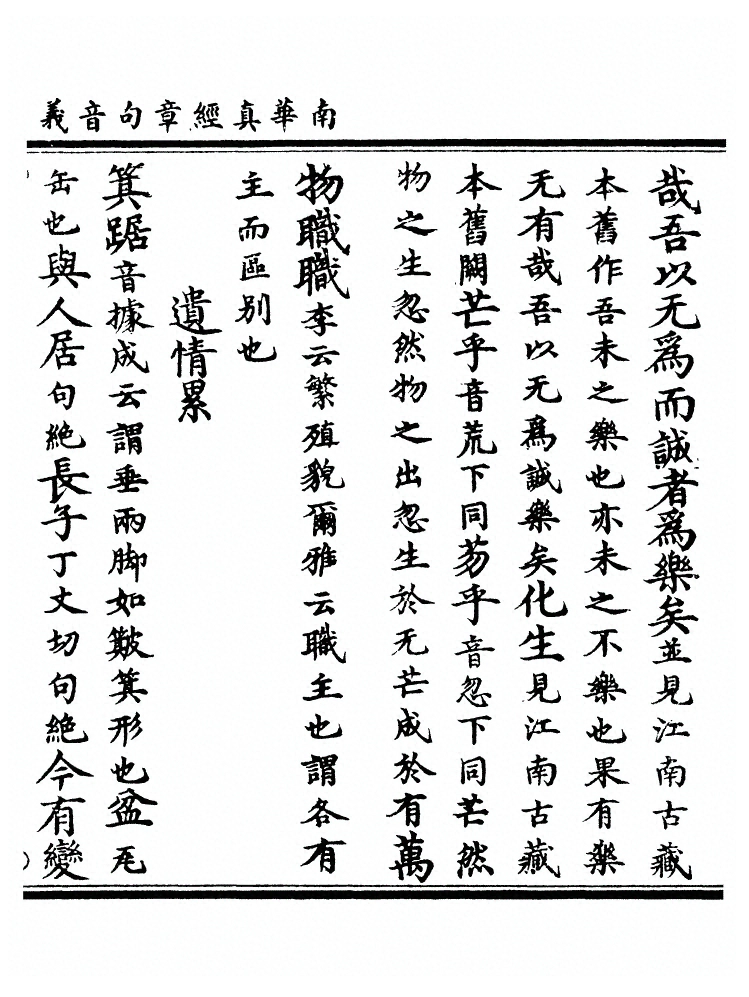 南華真經章句音義
哉吾以无爲而誠者爲樂矣並見江南古藏
本舊作吾未之樂也亦未之不樂也果有樂
无有哉吾以无爲誠樂矣化生見江南古藏
本舊闕芒乎音荒下同芴乎音忽下同芒然
物之生忽然物之出忽生於无芒成於有萬
物職職李云繁殖貌爾雅云職主也謂各有
主而區別也
遺情累
箕踞音據成云謂垂兩脚如皷箕形也盆瓦
缶也與人居句絶長子丁丈切句絶今有變